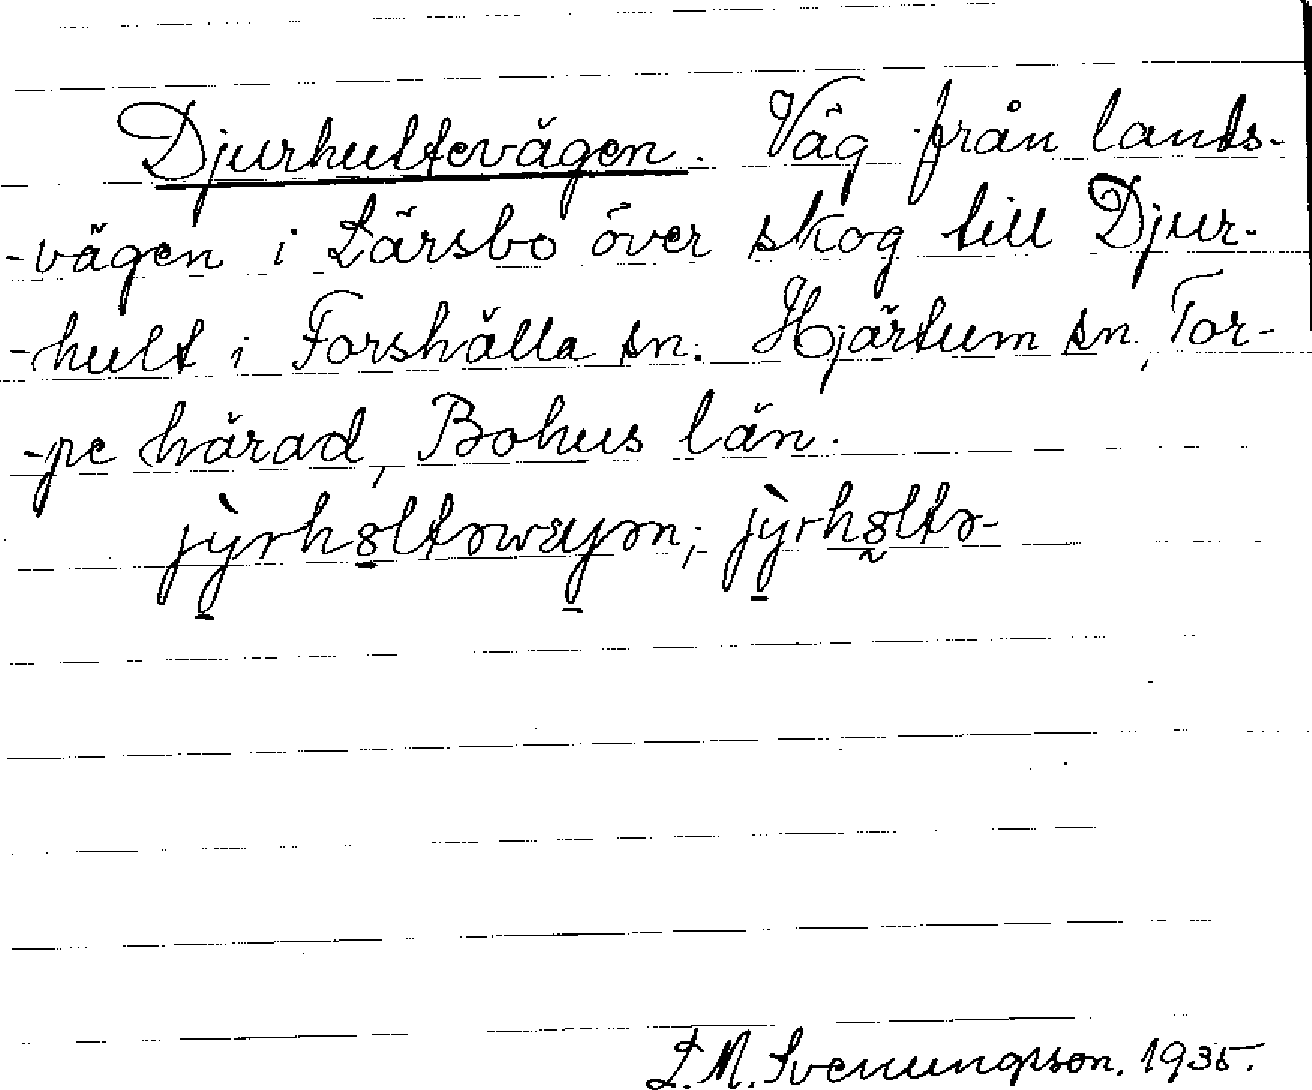 Djurhultevägen. Väg från lands-
-vägen i Lärsbo över skog till Djur-
-hult i Forshälla sn. Hjärtum sn, Tor-
-pe härad, Bohus län.
L.M. Svenungsson. 1935.